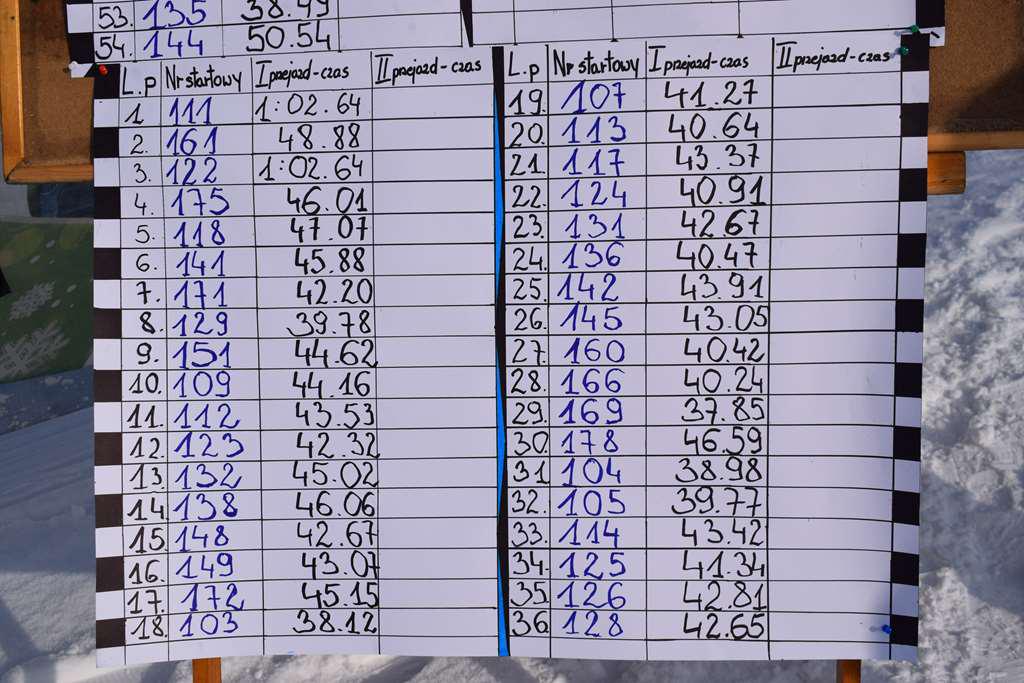 53. 135 38.49
54. 144 50.54
L.p Nr startowy I przejazd-czas II przejazd-czas
1 111 1:02.64
2. 161 48.88
3. 122 1:02.64
4. 175 46.01
5. 118 47.07
6. 141 45.88
7. 171 42.20
8. 129 39.78
9. 151 44.62
10. 109 44.16
11. 112 43.53
12. 123 42.32
13. 132 45.02
14 138 46.06
15 148 42.67
16. 149 43.07
17. 172 45.15
18. 103 38.12
L.p Nr startowy I przejazd-czas II przejazd-czas
19. 107 41.27
20. 113 40.64
21. 117 43.37
22. 124 40.91
23. 131 42.67
24. 136 40.47
25. 142 43.91
26. 145 43.05
27. 160 40.42
28. 166 40.24
29. 169 37.85
30. 178 46.59
31 104 38.98
32. 105 39.77
33. 114 43.42
34. 125 41.34
35. 126 42.81
36 128 42.65